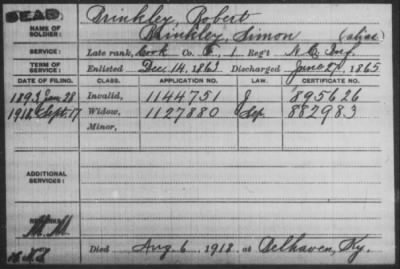 DEAD.
NAME OF SOLDIER: Brinkley, Robert
Brinkley, Simon (alias)
SERVICE: Late rank, Cook Co. F, 1 Reg't N.C. Inf.
TERM OF SERVICE: Enlisted Dec. 14, 1863 Discharged June 27, 1865
DATE OF FILING. CLASS. APPLICATION NO. LAW. CERTIFICATE NO.
1893 Jan. 28 Invalid, 1144751 J 895626
1918 Sept. 17 Widow, 1127880 882983
Minor,
ADDITIONAL SERVICES:
Died Aug. 6, 1918 at Belhaven, Ky.